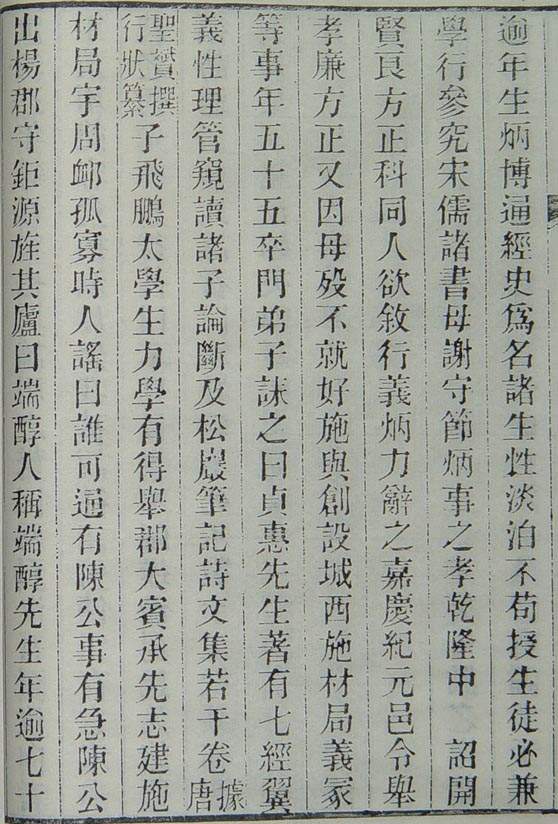 逾年生炳博通經史爲名諸生性淡泊不苟授生徒必兼
學行參究宋儒諸書母謝守節炳事之孝乾隆中 詔開
賢良方正科同人欲敘行義炳力辭之嘉慶紀元邑令舉
孝廉方正又因母歿不就好施與創設城西施材局義冢
等事年五十五卒門弟子誄之曰貞惠先生著有七經翼
義性理管窺讀諸子論斷及松巖筆記詩文集若干卷據唐
聖贇撰行狀纂子飛鵬太學生力學有得舉郡大賓承先志建施
材局宇周卹孤寡時人謠曰誰可逼有陳公事有急陳公
出楊郡守鉅源旌其廬曰端醇人稱端醇先生年逾七十